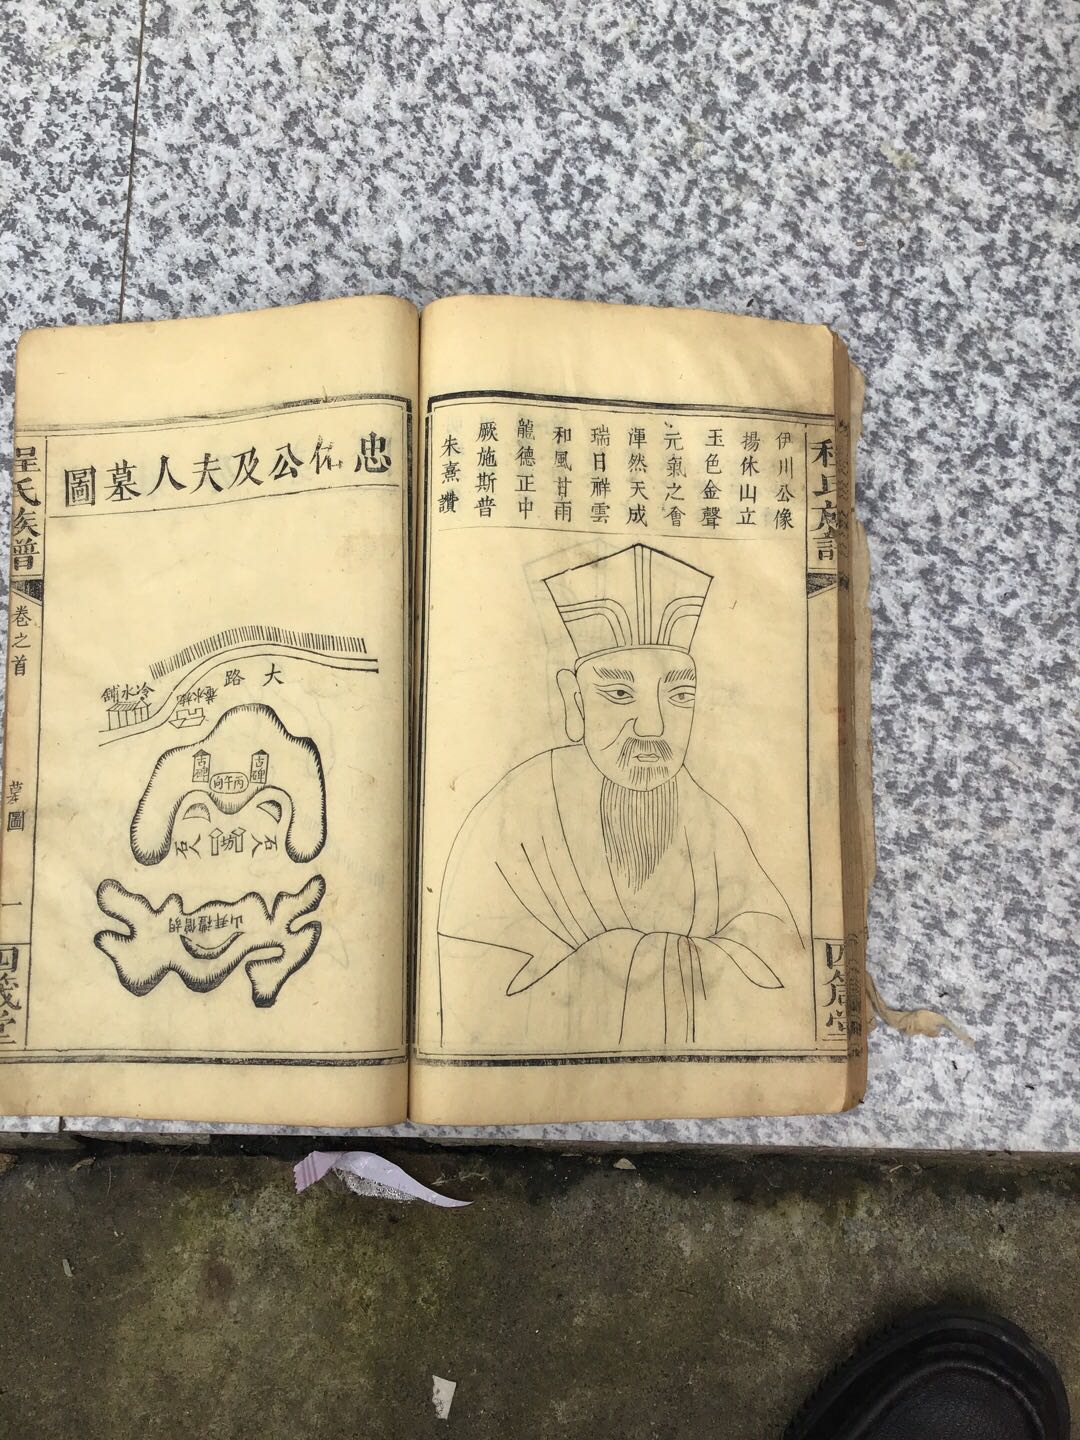 程氏族譜
四箴堂
伊川公像
揚休山立
玉色金聲
元氣之會
渾然天成
瑞日祥雲
和風甘雨
龍德正中
厥施斯普
朱熹讚
忠佑公及夫人墓圖
大路
冷水舖
古碑
丙午向
古碑
石人
坊
石人
胡僧禮拜山
程氏族譜
卷之首
墓圖
一
四箴堂